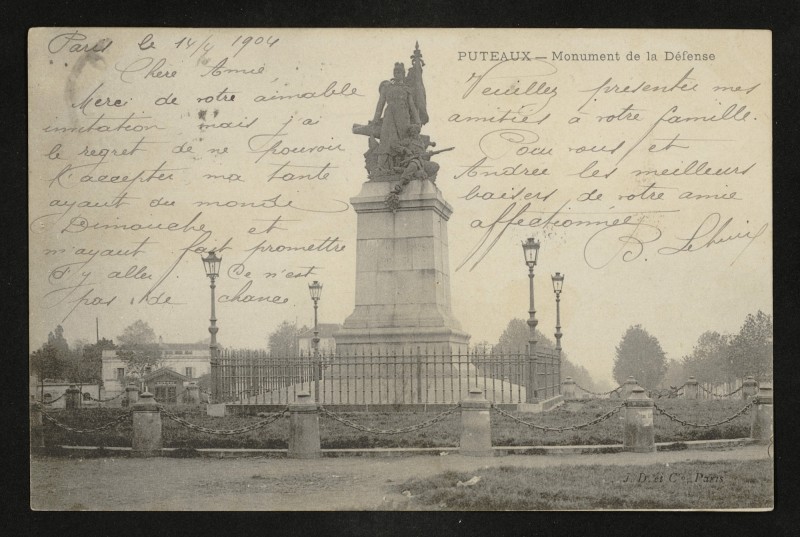 PUTEAUX — Monument de la Défense
Paris le 14/4 1904
Chère Amie,
Merci de votre aimable
invitation mais j'ai
le regret de ne pouvoir
l'accepter ma tante
ayant du monde
Dimanche et
m'ayant fait promettre
d'y aller Ce n'est
pas de chance
Veuillez présenter mes
amitiés à votre famille.
Pour vous et
Andrée les meilleurs
baisers de votre amie
affectionnée
J. D. et Cie, Paris